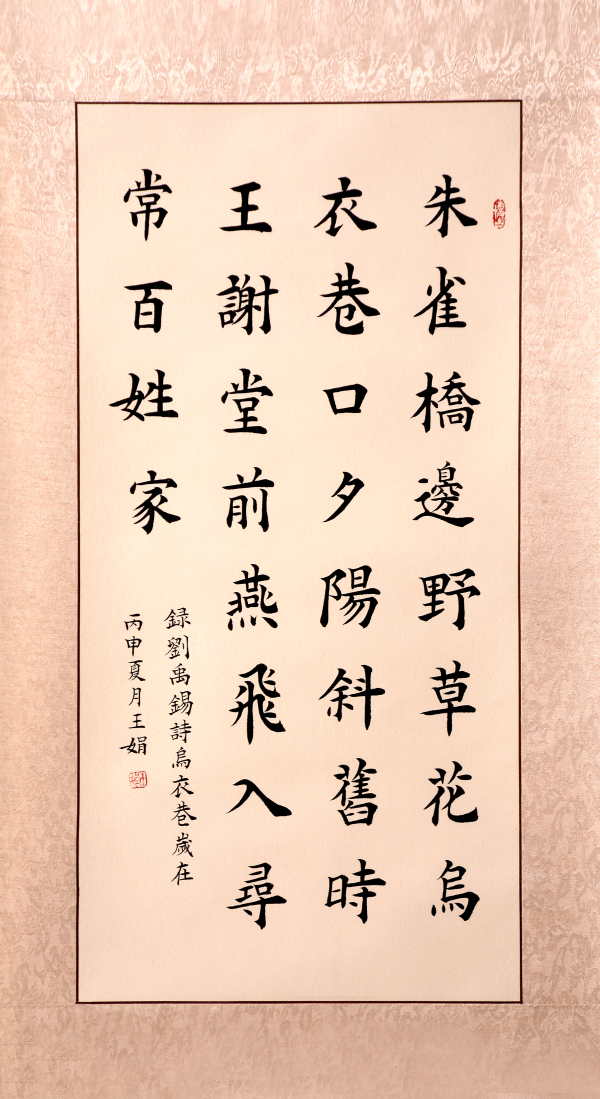 朱雀橋邊野草花烏
衣巷口夕陽斜舊時
王謝堂前燕飛入尋
常百姓家
録劉禹錫詩烏衣巷歲在
丙申夏月王娟